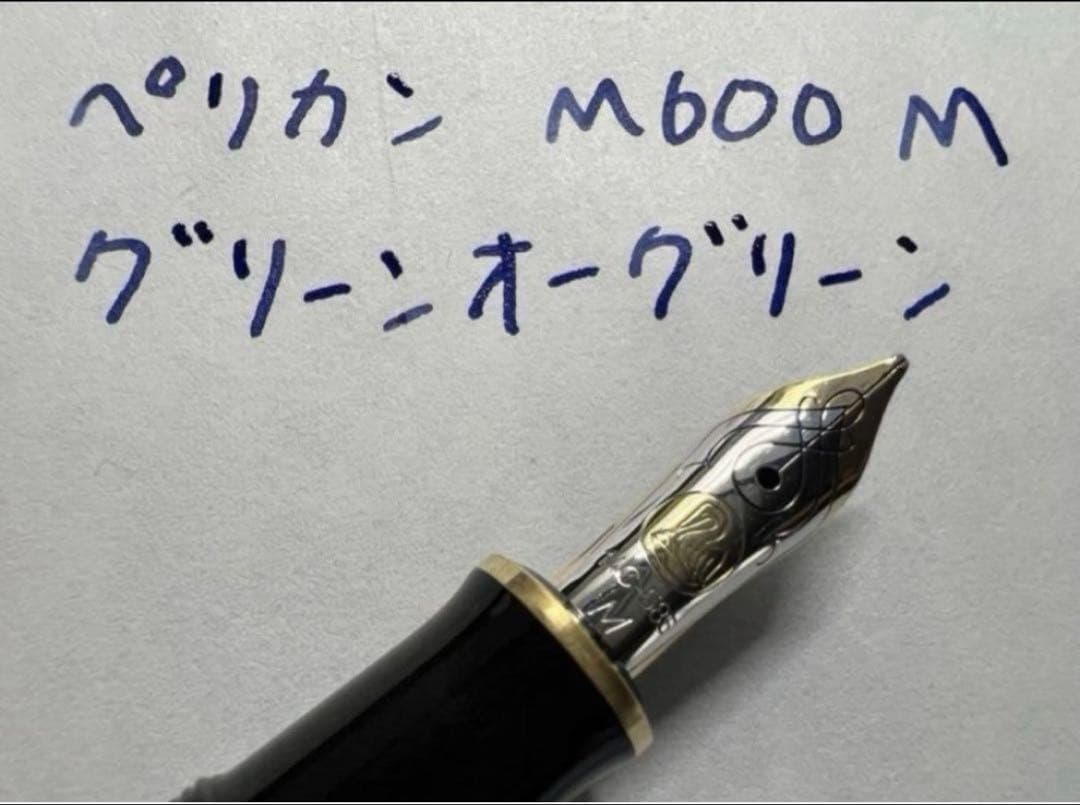 ペリカン M600 M
グリーンオーグリーン
14C-585
M